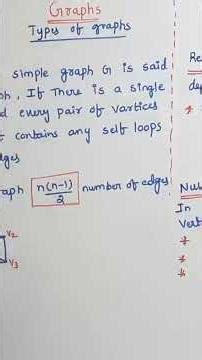 Graphs
Types of graphs
simple graph G is said
ph, If There is a single
d every pair of vartices
t contains any self loops
dges
raph n(n-1)/2 number of edges
V2
V3
Re
de
Nul
In
Vert